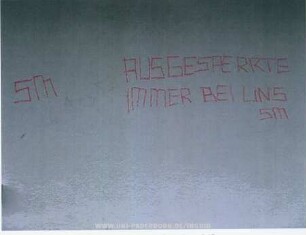 SM
AUSGESPERRTE
IMMER BEI UNS
SM